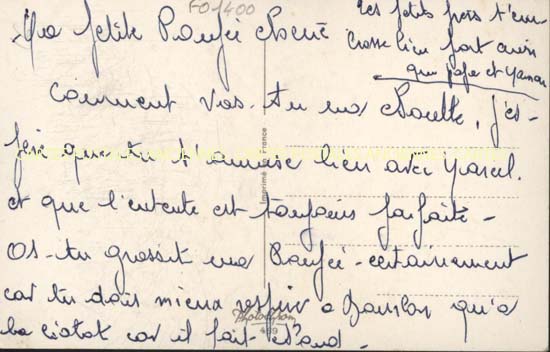 FO1400
Ma petite Poupée Cherie
Tes petits frères t'em
brasse bien fort ainsi
que papa et Maman
Comment vas-tu ma chouette, j'es-
père que tu t'amuse bien avec Marcel.
et que l'entente est toujours parfaite -
As-tu grossit ma Poupée - certainement
car tu dois mieux respirer a qu'a
la ciotat car il fait chaud -
Imprimé en France
Photochrom